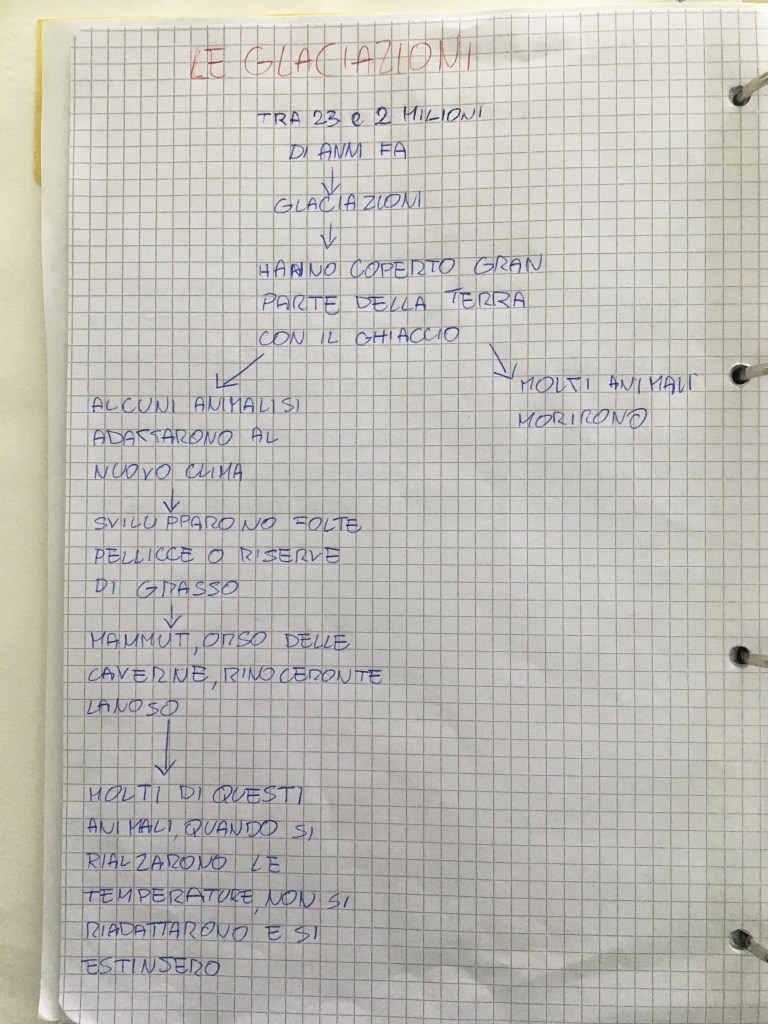 LE GLACIAZIONI
TRA 23 e 2 MILIONI
DI ANNI FA
GLACIAZIONI
HANNO COPERTO GRAN
PARTE DELLA TERRA
CON IL GHIACCIO
MOLTI ANIMALI
MORIRONO
ALCUNI ANIMALI SI
ADATTARONO AL
NUOVO CLIMA
SVILUPPARONO FOLTE
PELLICCE O RISERVE
DI GRASSO
MAMMUT, ORSO DELLE
CAVERNE, RINOCERONTE
LANOSO
MOLTI DI QUESTI
ANIMALI, QUANDO SI
RIALZARONO LE
TEMPERATURE, NON SI
RIADATTARONO E SI
ESTINSERO